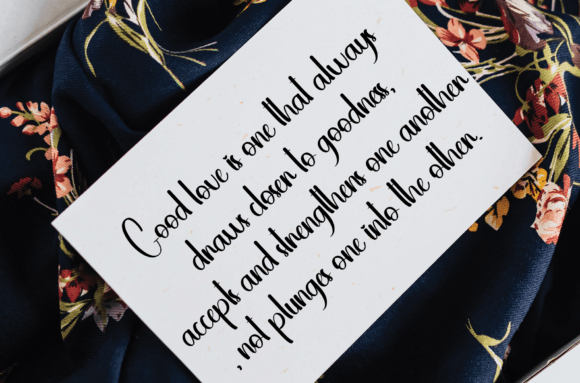 Good love is one that always
draws closer to goodness,
accepts and strengthens one another
, not plunges one into the other.